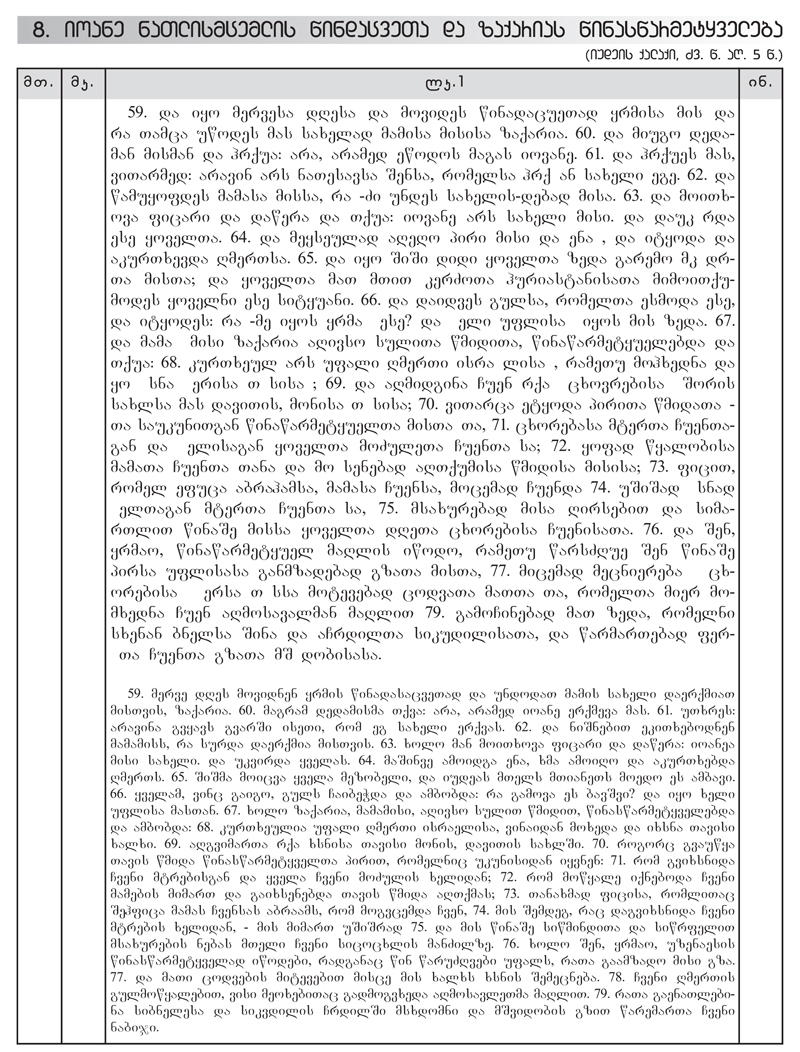 8. იოანე ნათლისმცემლის წინდაცვეთა და ზაქარიას წინასწარმეტყველება
(იუდეის ქალაქი, ძვ. წ. აღ. 5 წ.)
მთ. მკ. ლკ.1 ინ.
59. და იყო მერვესა დღესა და მოვიდეს წინადაცუეთად ყრმისა მის და
რა თამცა უწოდეს მას სახელად მამისა მისისა ზაქარია. 60. და მიუგო დედა-
მან მისმან და ჰრქუა: არა, არამედ ეწოდოს მაგას იოვანე. 61. და ჰრქუეს მას,
ვითარმედ: არავინ არს ნათესავსა შენსა, რომელსა ჰრქ ან სახელი ეგე. 62. და
წამუყოფდეს მამასა მისსა, რა -ძი უნდეს სახელის-დებად მისა. 63. და მოითხ-
ოვა ფიცარი და დაწერა და თქუა: იოვანე არს სახელი მისი. და დაუკ რდა
ესე ყოველთა. 64. და მეყსეულად აღეღო პირი მისი და ენა , და იტყოდა და
აკურთხევდა ღმერთსა. 65. და იყო შიში დიდი ყოველთა ზედა გარემო მკ დრ-
თა მისთა; და ყოველთა მათ მთით კერძოთა ჰურიასტანისათა მიმოითქუ-
მოდეს ყოველნი ესე სიტყუანი. 66. და დაიდვეს გულსა, რომელთა ესმოდა ესე,
და იტყოდეს: რა -მე იყოს ყრმა ესე? და ელი უფლისა იყოს მის ზედა. 67.
და მამა მისი ზაქარია აღივსო სულითა წმიდითა, წინაწარმეტყუელებდა და
თქუა: 68. კურთხეულ არს უფალი ღმერთი ისრა ლისა , რამეთუ მოჰხედნა და
ყო სნა ერისა თ სისა ; 69. და აღმიდგინა ჩუენ რქა ცხოვრებისა შორის
სახლსა მას დავითის, მონისა თ სისა; 70. ვითარცა ეტყოდა პირითა წმიდათა -
თა საუკუნითგან წინაწარმეტყუელთა მისთა თა, 71. ცხორებასა მტერთა ჩუენთა-
გან და ელისაგან ყოველთა მოძულეთა ჩუენთა სა; 72. ყოფად წყალობისა
მამათა ჩუენთა თანა და მო სენებად აღთქუმისა წმიდისა მისისა; 73. ფიცით,
რომელ ეფუცა აბრაჰამსა, მამასა ჩუენსა, მოცემად ჩუენდა 74. უშიშად სნად
ელთაგან მტერთა ჩუენთა სა, 75. მსახურებად მისა ღირსებით და სიმა-
რთლით წინაშე მისსა ყოველთა დღეთა ცხორებისა ჩუენისათა. 76. და შენ,
ყრმაო, წინაწარმეტყუელ მაღლის იწოდო, რამეთუ წარსძღუე შენ წინაშე
პირსა უფლისასა განმზადებად გზათა მისთა, 77. მიცემად მეცნიერება ცხ-
ორებისა ერსა თ სსა მოტევებად ცოდვათა მათთა თა, რომელთა მიერ მო-
მხედნა ჩუენ აღმოსავალმან მაღლით 79. გამოჩინებად მათ ზედა, რომელნი
სხენან ბნელსა შინა და აჩრდილთა სიკუდილისათა, და წარმართებად ფერ-
თა ჩუენთა გზათა მშ დობისასა.
59. მერვე დღეს მოვიდნენ ყრმის წინადასაცვეთად და უნდოდათ მამის სახელი დაერქმიათ
მისთვის, ზაქარია. 60. მაგრამ დედამისმა თქვა: არა, არამედ იოანე ერქმევა მას. 61. უთხრეს:
არავინა გვყავს გვარში ისეთი, რომ ეგ სახელი ერქვას. 62. და ნიშნებით ეკითხებოდნენ
მამამისს, რა სურდა დაერქმია მისთვის. 63. ხოლო მან მოითხოვა ფიცარი და დაწერა: იოანეა
მისი სახელი. და უკვირდა ყველას. 64. მაშინვე ამოიდგა ენა, ხმა ამოიღო და აკურთხებდა
ღმერთს. 65. შიშმა მოიცვა ყველა მეზობელი, და იუდეას მთელს მთიანეთს მოედო ეს ამბავი.
66. ყველამ, ვინც გაიგო, გულს ჩაიბეჭდა და ამბობდა: რა გამოვა ეს ბავშვი? და იყო ხელი
უფლისა მასთან. 67. ხოლო ზაქარია, მამამისი, აღივსო სულით წმიდით, წინასწარმეტყველებდა
და ამბობდა: 68. კურთხეულია უფალი ღმერთი ისრაელისა, ვინაიდან მოხედა და იხსნა თავისი
ხალხი. 69. აღგვიმართა რქა ხსნისა თავისი მონის, დავითის სახლში. 70. როგორც გვაუწყა
თავის წმიდა წინასწარმეტყველთა პირით, რომელნიც უკუნისიდან იყვნენ: 71. რომ გვიხსნიდა
ჩვენი მტრებისგან და ყველა ჩვენი მოძულის ხელიდან; 72. რომ მოწყალე იქნებოდა ჩვენი
მამების მიმართ და გაიხსენებდა თავის წმიდა აღთქმას; 73. თანახმად ფიცისა, რომლითაც
შეჰფიცა მამას ჩვენსას აბრაამს, რომ მოგვცემდა ჩვენ, 74. მის შემდეგ, რაც დაგვიხსნიდა ჩვენი
მტრების ხელიდან, - მის მიმართ უშიშრად 75. და მის წინაშე სიწმინდითა და სიწრფელით
მსახურების ნებას მთელი ჩვენი სიცოცხლის მანძილზე. 76. ხოლო შენ, ყრმაო, უზენაესის
წინასწარმეტყველად იწოდები, რადგანაც წინ წარუძღვები უფალს, რათა გაამზადო მისი გზა.
77. და მათი ცოდვების მიტევებით მისცე მის ხალხს ხსნის შემეცნება. 78. ჩვენი ღმერთის
გულმოწყალებით, ვისი მეოხებითაც გადმოგვხედა აღმოსავლეთმა მაღლით. 79. რათა გაენათლები-
ნა სიბნელესა და სიკვდილის ჩრდილში მსხდომნი და მშვიდობის გზით წარემართა ჩვენი
ნაბიჯი.